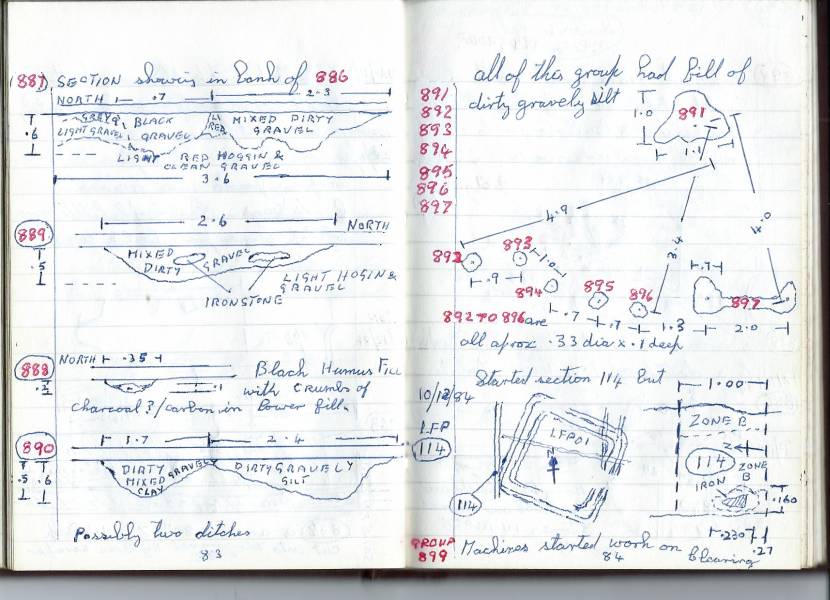 (887) SECTION showing in bank of 886
NORTH .7 2.3
GREY & BLACK LI RED MIXED DIRTY
LIGHT GRAVEL GRAVEL GRAVEL
.6
LIGHT RED HOGGIN &
CLEAN GRAVEL
3.6
2.6 NORTH
889
MIXED GRAVEL
DIRTY
.5
LIGHT HOGIN &
GRAVEL
IRONSTONE
888 NORTH .35
Black Humus Fill
.1
with crumbs of
charcoal?/carbon in lower fill.
890 1.7 2.4
DIRTY GRAVELY DIRTY GRAVELY
MIXED SILT
CLAY
.5 .6
Possibly two ditches
83
all of this group had fill of
891 dirty gravely silt
892
893
894
895
896
897
1.0 891
1.1
4.9
3.4
4.0
892 893
1.0
.9
894 895 896
.7 .7 1.3 2.0
.7
897
892 TO 896 are
all aprox .33 dia x .1 deep
Started section 114 but
10/12/84
LFP
114
LFP01
N
114
1.00
ZONE B
Z
114
ZONE
B
IRON
.160
.230
.27
GROUP
899
Machines started work on clearing
84